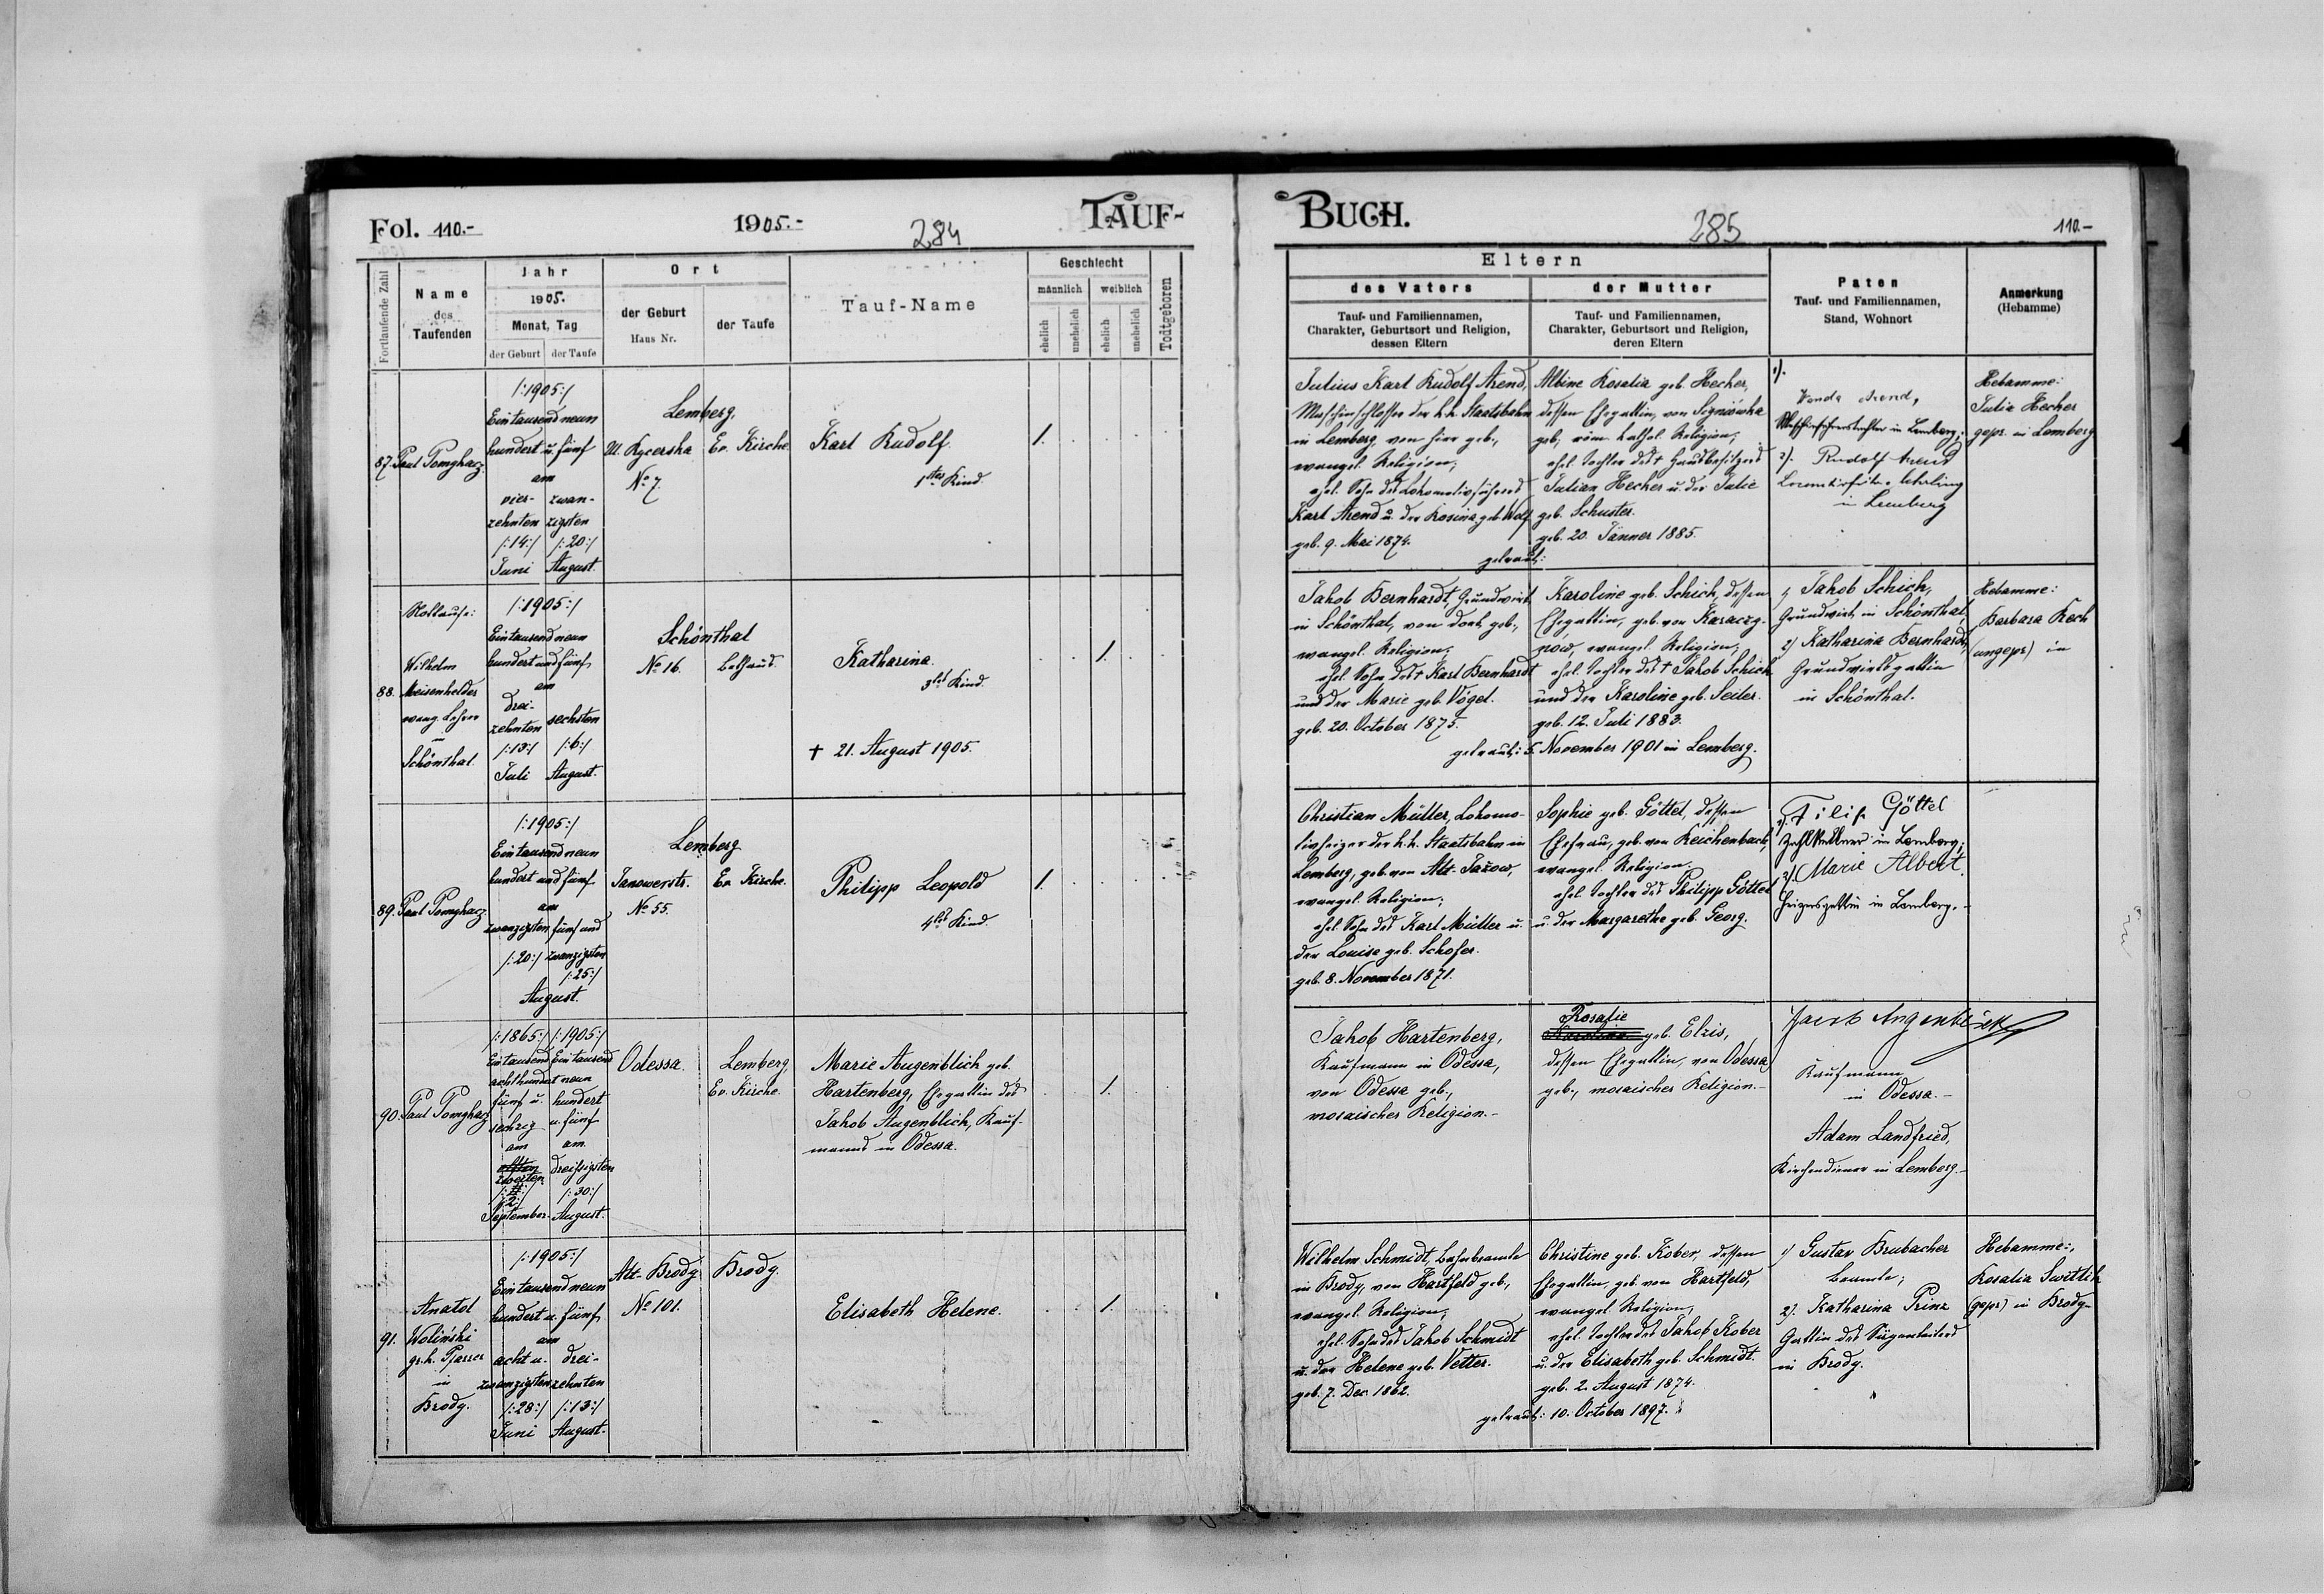 Fol. 110.-
1905.-
284
TAUF-
Fortlaufende Zahl
Name
des
Taufenden
Jahr
1905.
Monat, Tag
der Geburt
der Taufe
Ort
der Geburt
Haus Nr.
der Taufe
Tauf-Name
Geschlecht
männlich
weiblich
ehelich
unehelich
ehelich
unehelich
Todtgeboren
87.
Paul Pomgharz
/:1905:/
Ein tausend neun
hundert u. fünf
am
vier- zwan-
zehnten zigsten
/:14:/ /:20:/
Juni August.
Lemberg,
Ev. Kirche.
No 7.
Karl Rudolf.
1tes Kind
1.
88.
Nottaufe:
Wilhelm
Meisenhelder
evang. Lehrer
in
Schönthal.
/:1905:/
Ein tausend neun
hundert und fünf
am
drei-
zehnten sechsten
/:13:/ /:6:/
Juli August.
Schönthal
No 16.
Bethaus.
Katharina.
3tes Kind.
1.
† 21. August 1905.
89.
Paul Pomgharz
/:1905:/
Ein tausend neun
hundert und fünf
am
zwanzigsten fünf und
/:20:/ zwanzigsten
/:25:/
August.
Lemberg
Janowerstr. Ev. Kirche.
No 55.
Philipp Leopold
4tes Kind.
1.
90.
Paul Pomgharz
/:1865:/ /:1905:/
Ein tausend Ein tausend
achthundert neun
fünf u. hundert
sechzig u. fünf
am am
elften dreißigsten
zweiten
/:30:/
/:2:/
September August.
Odessa.
Lemberg,
Ev. Kirche.
Marie Augenblick geb.
Hartenberg, Ehegattin des
Jakob Augenblick, Kauf-
manns in Odessa.
1.
91.
Anatol
Woliński
gr. k. Pfarrer
in
Brody.
/:1905:/
Ein tausend neun
hundert u. fünf
am
acht u. drei-
zwanzigsten zehnten
/:28:/ /:13:/
Juni August.
Alt-Brody
No 101.
Brody.
Elisabeth Helene.
1.
BUCH.
285
110.-
Eltern
des Vaters
Tauf- und Familiennamen,
Charakter, Geburtsort und Religion,
dessen Eltern
der Mutter
Tauf- und Familiennamen,
Charakter, Geburtsort und Religion,
deren Eltern
Paten
Tauf- und Familiennamen,
Stand, Wohnort
Anmerkung
(Hebamme)
Julius Karl Rudolf Arend,
Maschinschlosser der k. k. Staatsbahn
in Lemberg, von hier geb.,
evangel. Religion;
ehel. Sohn des Lokomotivführers
Karl Arend u. der Rosina geb. Wolf
geb. 9. Mai 1874.
getraut:
Albine Rosalia geb. Hecher,
dessen Ehegattin, von Sygniówka
geb., röm. kathol. Religion,
ehel. Tochter des † Hausbesitzers
Julian Hecher u. der Julie
geb. Schuster.
geb. 20. Jänner 1885.
1).
Wanda Arend,
in Lemberg;
2). Rudolf Arend
in Lemberg
Hebamme:
Julie Hecher
gepr. in Lemberg
Jakob Bernhardt, Grundwirt
in Schönthal, von dort geb.,
evangel. Religion;
ehel. Sohn des † Karl Bernhardt
und der Marie geb. Vögel.
geb. 20. October 1875.
getraut: 5. November 1901 in Lemberg.
Karoline geb. Schick, dessen
Ehegattin, geb. von Karaczy-
now, evangel. Religion,
ehel. Tochter des † Jakob Schick
und der Karoline geb. Seiler.
geb. 12. Juli 1883.
1) Jakob Schick,
Grundwirt in Schönthal,
2) Katharina Bernhardt,
Grundwirtsgattin
in Schönthal.
Hebamme:
Barbara Koch
(ungepr.) in
Christian Müller, Lokomo-
tivheizer der k. k. Staatsbahn in
Lemberg, geb. von Alt-Jażow,
evangel. Religion;
ehel. Sohn des Karl Müller u.
der Louise geb. Schofer.
geb. 8. November 1871.
Sophie geb. Göttel, dessen
Ehefrau, geb. von Reichenbach,
evangel. Religion.
ehel. Tochter des Philipp Göttel
u. der Margarethe geb. Georg.
1). Filip Göttel
Zahlkellner in Lemberg;
2). Marie Albert,
Heizersgattin in Lemberg.-
Jakob Hartenberg,
Kaufmann in Odessa,
von Odessa geb.,
mosaischer Religion.-
Rosalie
geb. Elzis,
dessen Ehegattin, von Odessa
geb., mosaischer Religion.-
Jacob Augenblick
Kaufmann
in Odessa.-
Adam Landfried,
Kirchendiener in Lemberg.-
Wilhelm Schmidt, Bahnbeamte
in Brody, von Hartfeld geb.,
evangel. Religion;
ehel. Sohn des Jakob Schmidt
u. der Helene geb. Vetter.
geb. 7. Dec. 1862.
getraut: 10. October 1897.
Christine geb. Kober, dessen
Ehegattin, geb. von Hartfeld,
evangel. Religion,
ehel. Tochter des Jakob Kober
u. der Elisabeth geb. Schmidt.
geb. 2. August 1874.
1) Gustav Brubacher
Beamte;
2). Katharina Prinz
Gattin des
in Brody.
Hebamme:,
Rosalia
(gepr.) in Brody-